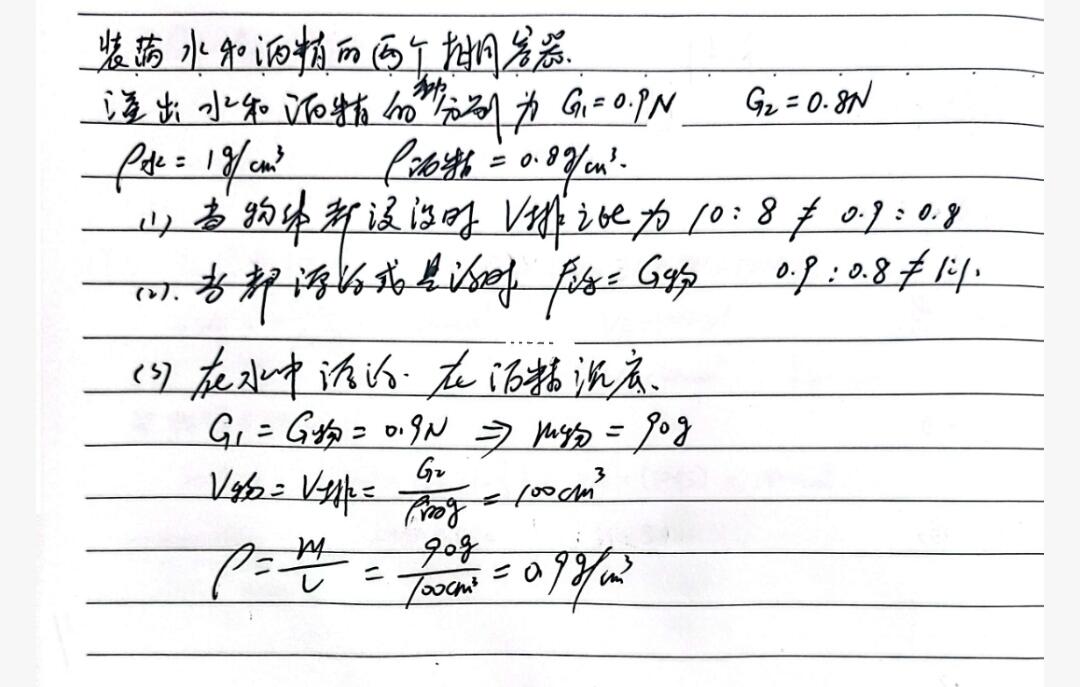 装满水和酒精的两个相同容器.
溢出水和酒精的重力分别为 G₁=0.9N G₂=0.8N
ρ水=1g/cm³ ρ酒精=0.8g/cm³.
(1) 当物体都浸没时 V排之比为 10:8≠0.9:0.8
(2). 当都漂浮或悬浮时 F浮=G物 0.9:0.8≠1:1.
(3) 在水中漂浮. 在酒精沉底.
G₁=G物=0.9N ⇒ m物=90g
V物=V排=G₂/ρ酒g=100cm³
ρ=m/V=90g/100cm³=0.9g/cm³